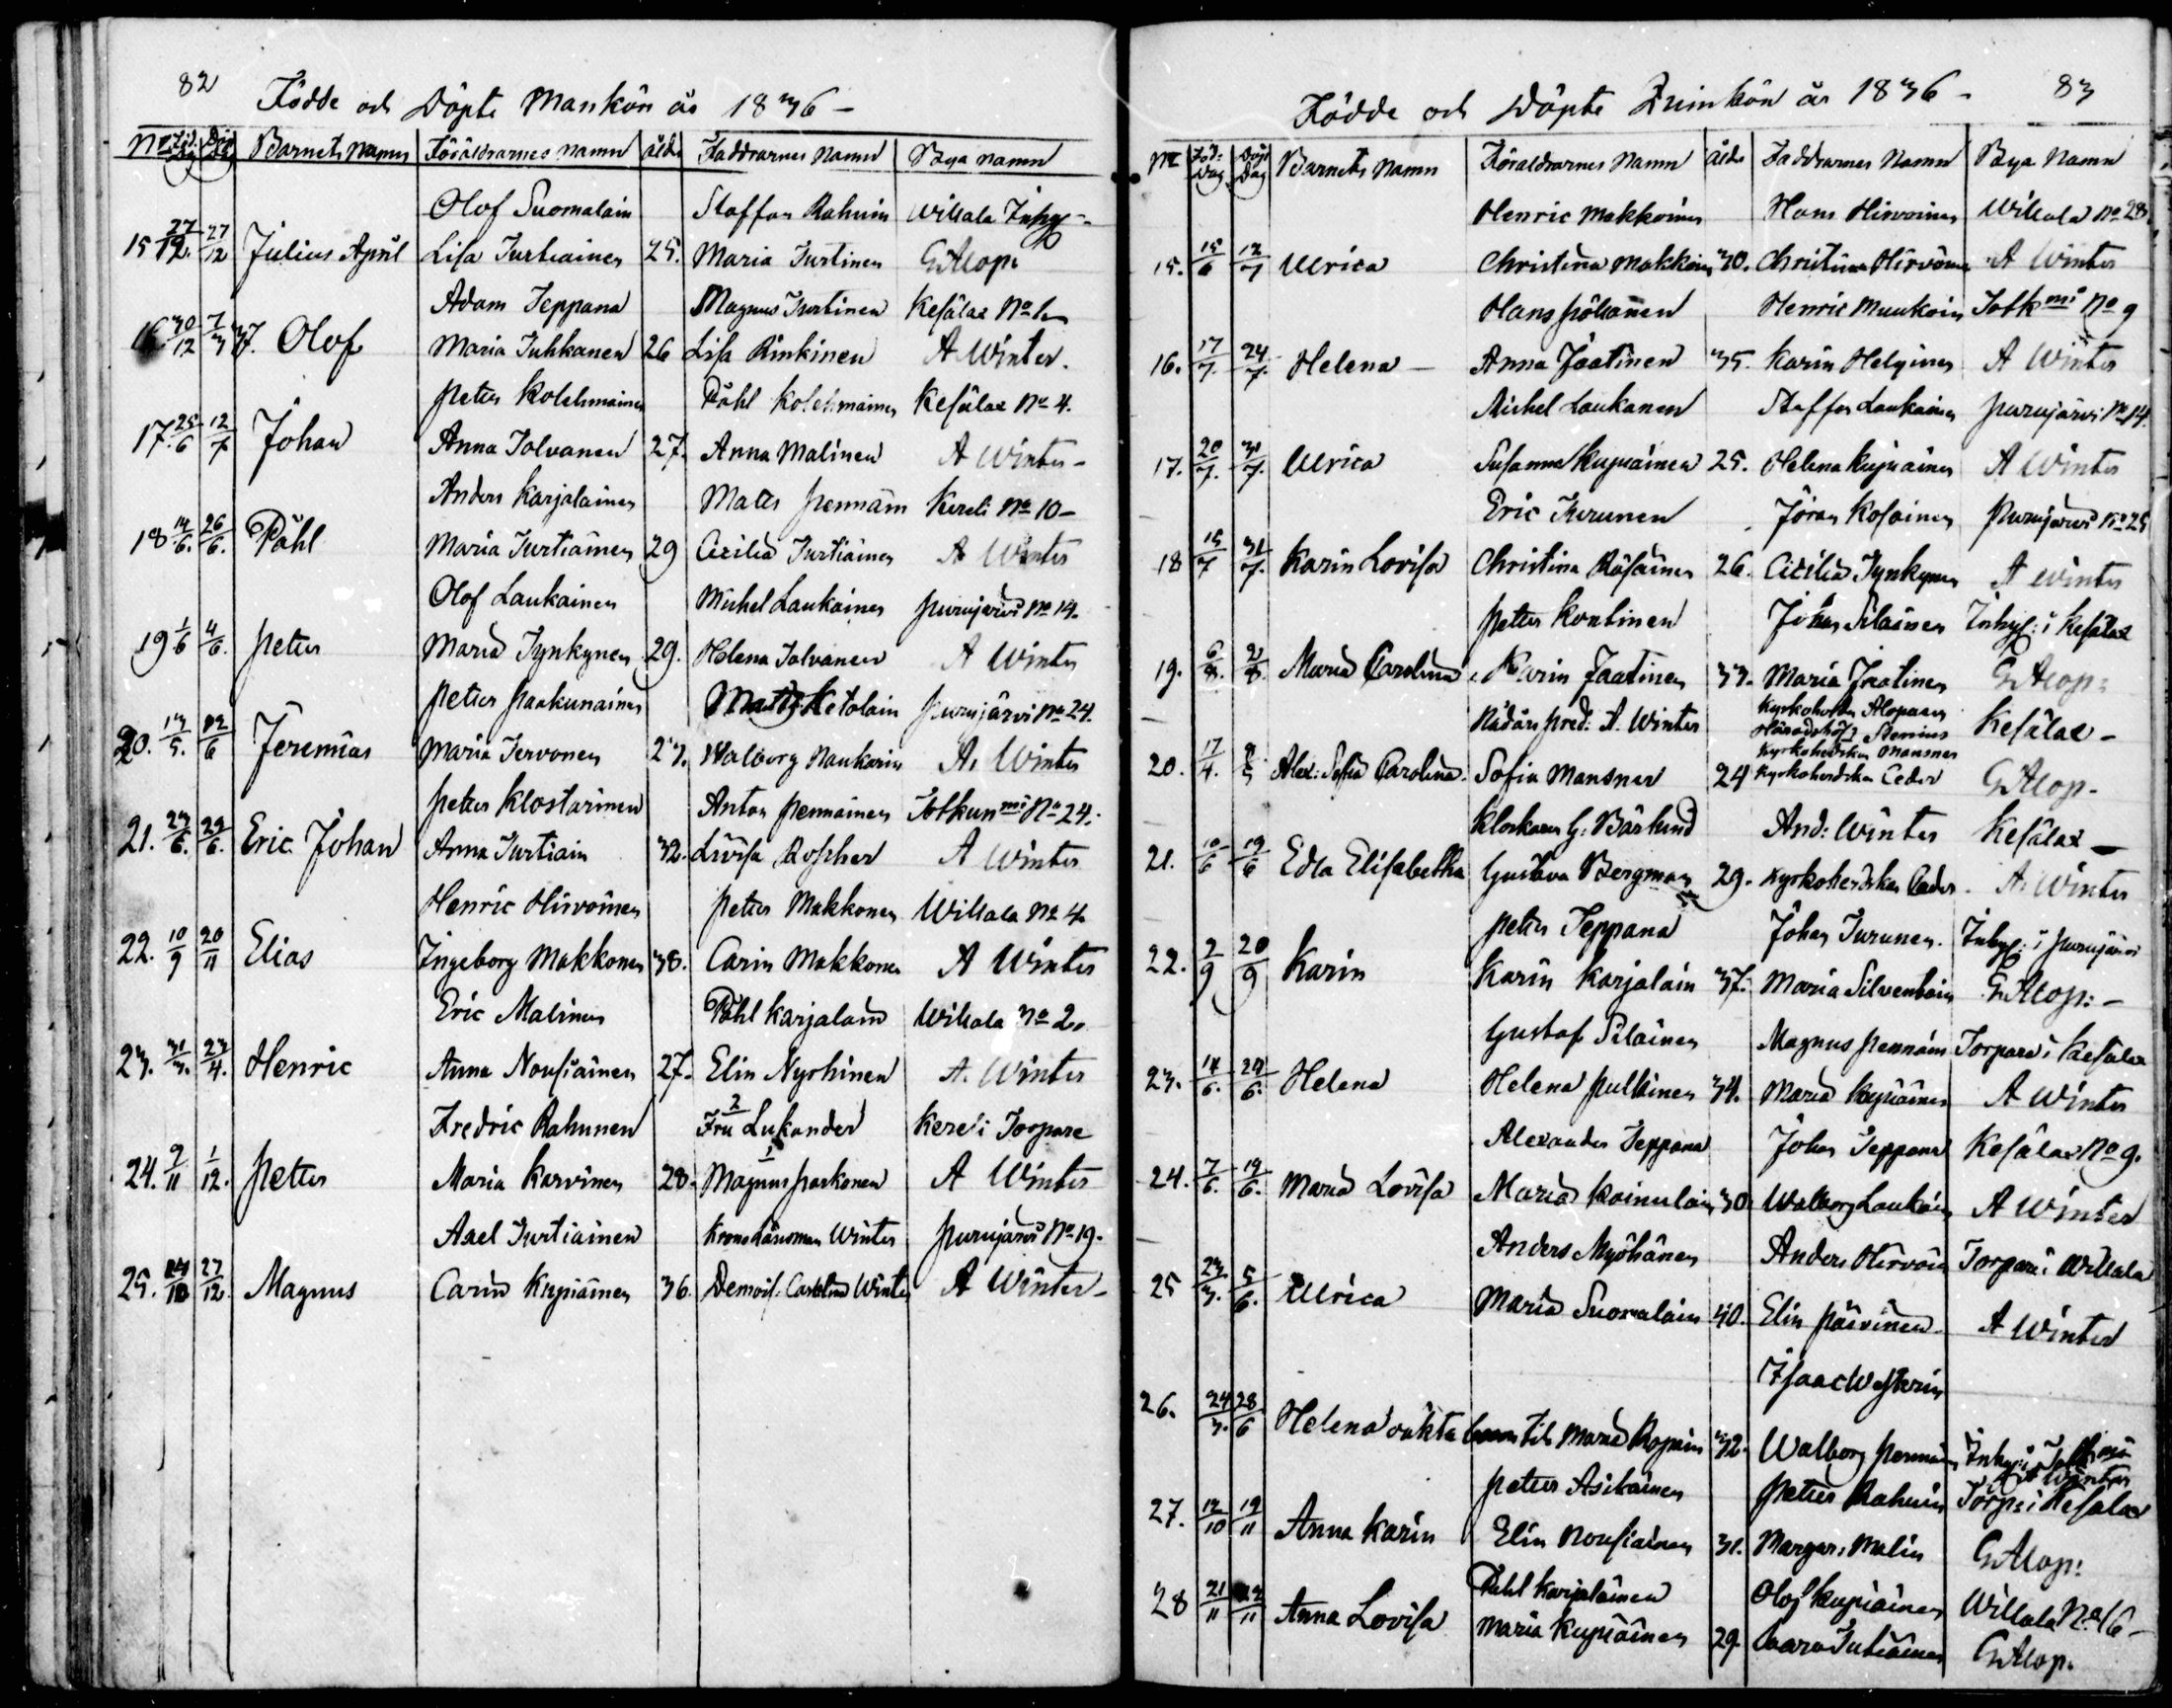 82
Födde och Döpte Mankön år 1836 -
No Föd. Dag Döp Dag Barnets Namn Föräldrarnes namn ålder Faddrarnes Namn Bya namn
Olof Suomalain Staffan Rahuin Willala Inhys-
15 27/12. 27/12 Julius April Lisa Turtiainen 25. Maria Turtinen G Alop:
Adam Teppana Magnus Turtinen Kesälax No 1
16 30/12 7/3 37. Olof Maria Tuhkanen 26 Lisa Rinkinen A Winter.
Petter Kolehmainen Påhl Kolehmainen Kesälax No 4.
17. 25/6 12/7 Johan Anna Tolvanen 27. Anna Malinen A Winter-
Anders Karjalainen Matts Pennäin Kereli No 10-
18 14/6. 26/6. Påhl Maria Turtiainen 29 Cecilia Turtiainen A Winter
Olof Laukainen Michel Laukainen Purujärvi No 14.
19 1/6 4/6. Petter Maria Tynkynen 29. Helena Tolvanen A Winter
Petter Paakunainen Matts Ketolain Purujärvi No 24.
20. 13/5. 12/6 Jeremias Maria Tervonen 27. Walborg Naukarin A. Winter
Petter Klostarinen Anton Pennainen Totkunmi No 24.
21. 23/6. 29/6. Eric Johan Anna Turtiain 32. Lovisa Roscher A Winter
Henric Hirvoinen Petter Makkonen Willala No 4
22. 10/9 20/11 Elias Ingeborg Makkonen 38. Carin Makkonen A Winter
Eric Malinen Påhl Karjalain Willala No 2.
23. 31/3. 23/4. Henric Anna Nousiainen 27. Elin Nyrhinen A. Winter
Fredric Rahunen 2 Fru Lukander Kere: Torpare
24. 9/11 1/12. Petter Maria Karvinen 28. 1 Magnus Parkonen A Winter
Axel Turtiainen Krono Länsman Winter Purujärvi No 19.
25. 24/10 27/12 Magnus Carin Kupiainen 36. Demois. Carolina Winter A Winter-
83
Födde och Döpte Quinkön år 1836 -
No Föd: Dag Döp Dag Barnets Namn Föräldrarnes Namn ålder Faddrarnes Namn Bya Namn
Henric Makkoinen Hans Hirvoinen Willala No 28.
15. 15/6 12/7 Ulrica Christina Makkoin 30. Christina Hirvoinen A Winter
Hans Pöllänen Henric Muukoin Totkmi No 9
16. 17/7. 24/7. Helena - Anna Jaatinen 35. Karin Helginen A Winter
Michel Laukanen Staffan Laukainen Purujärvi No 14.
17. 20/7. 31/7. Ulrica Susanna Kupiainen 25. Helena Kupiainen A Winter
Eric Turunen Jöran Kosoinen Purujärvi No 25
18 15/7 31/7. Karin Lovisa Christina Räsainen 26. Cicilia Tynkynen A Winter
Petter Kontinen Johan Silainen Inhys: i Kesälax
19. 6/8. 2/8. Maria Carolina Karin Jaatinen 33. Maria Jaatinen G Alop:
Nådårs Pred: A. Winter Kyrkoherden Alopaeus
Häradshöf: Stenius Kesälax -
Kyrkoherdskan Mansner
20. 17/4. Alex: Sofia Carolina Sofia Mansner 24 Kyrkoherdskan Ceder G Alop-
Klockaren G. Bärlund And: Winter Kesälax -
21. 10/6 19/6 Edla Elisabetha Gustava Bergman 29. Kyrkoherdskan Ceder. A. Winter
Petter Teppana Johan Turunen. Inhys: i Purujärvi
22. 2/9 20/9 Karin Karin Karjalain 37. Maria Silventoin G Alop: -
Gustaf Silainen Magnus Pennäin Torpare i Kesälax
23. 14/6. 24/6. Helena Helena Pulkinen 34. Maria Kupiainen A Winter
Alexander Teppana Johan Teppana Kesälax No 9.
24. 7/6. 19/6. Maria Lovisa Maria Koinulain 30 Walborg Laukain A Winter
Anders Myöhänen Anders Hirvoin Torpare i Willala
25 23/3. 5/6. Ulrica Maria Suomalain 40. Elin Päivinen. A Winter
Isaac Westerin
26. 24/3. 28/6 Helena oäkta barn til Maria Ropoin 32. Walborg Pennäin Inhys i Totkmi
A Winter
Petter Asikainen Petter Rahuin Torp: i Kesälax
27. 12/10 19/11 Anna Karin Elin Nousiainen 31. Margar. Malin G Alop:
Påhl Karjalainen Olof Kupiainen Willala No 16-
28 21/11 22/11 Anna Lovisa Maria Kupiainen 29. Caara Turtiainen G Alop.